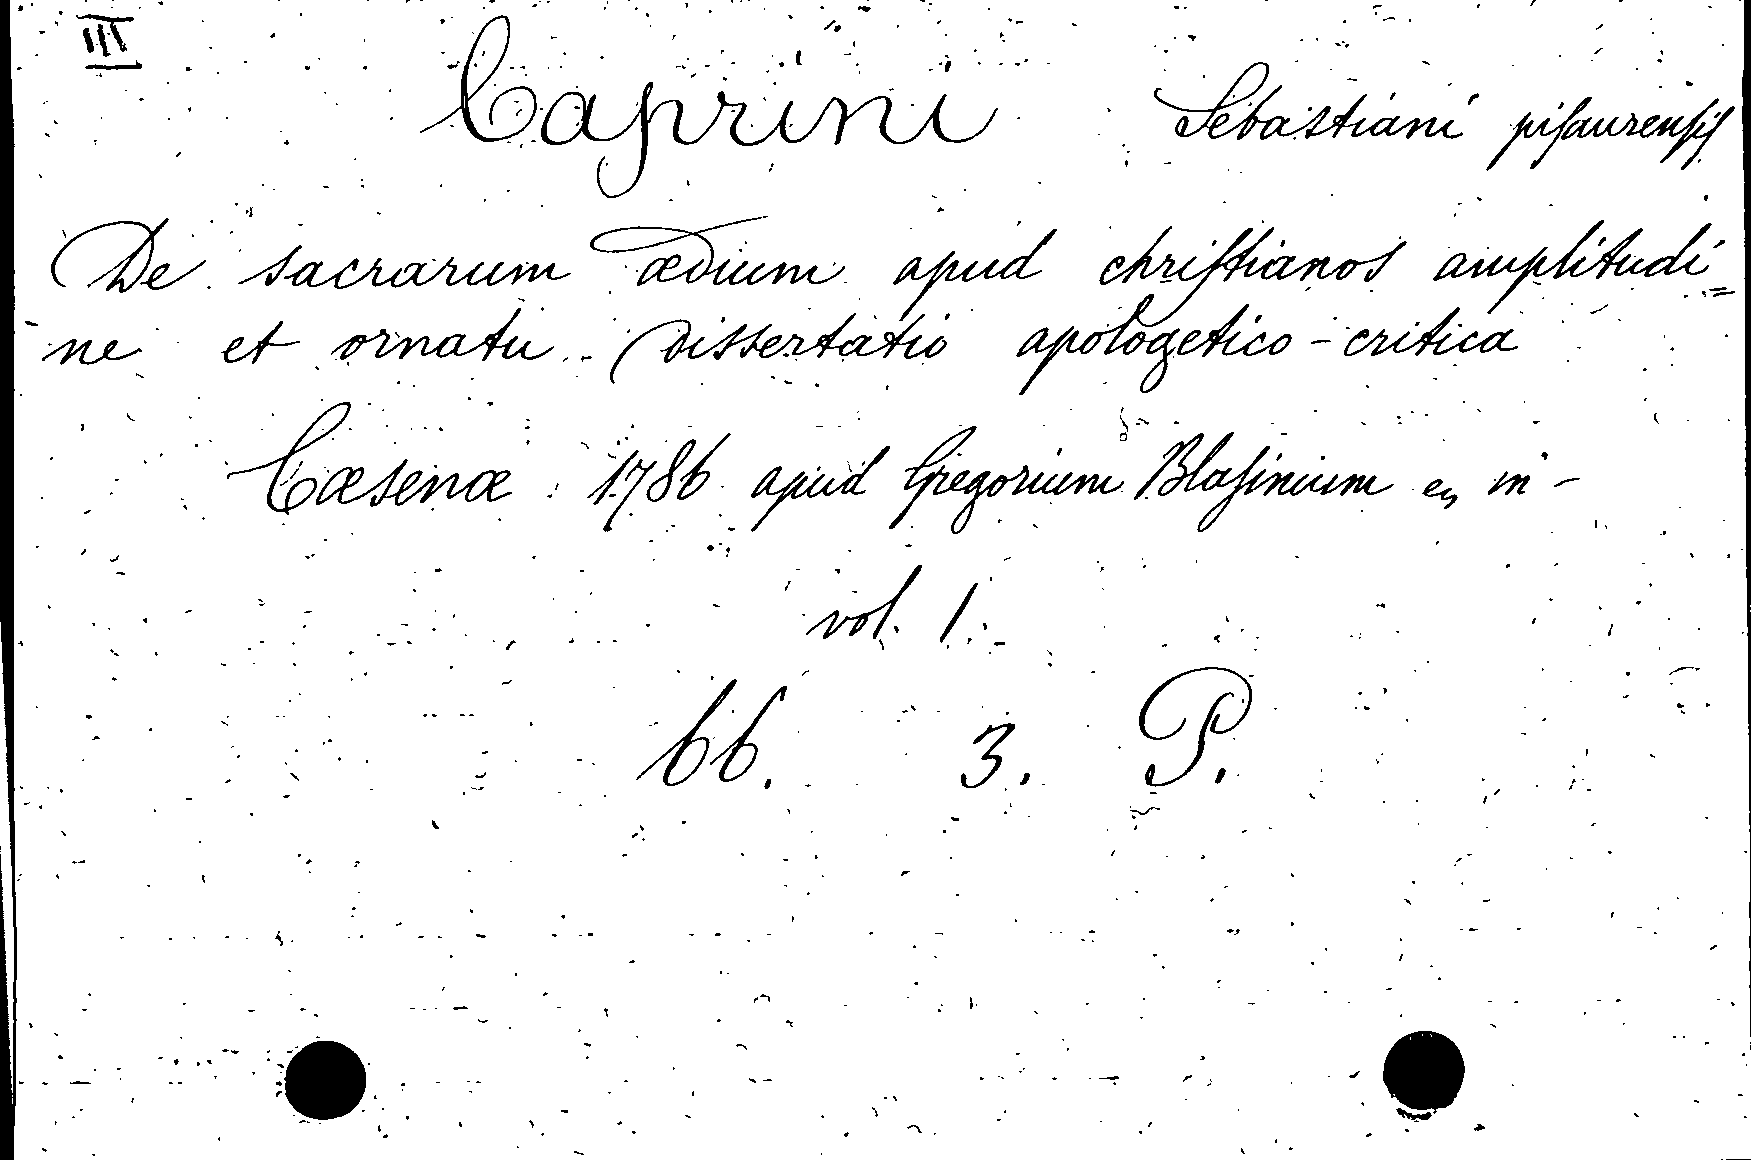 III
Caprini Sebastiani pisaurensis
De sacrarum ædium apud christianos amplitudi=
ne et ornatu. Dissertatio apologetico-critica
Cæsenæ 1786 apud Gregorium Blasinium in-
vol. 1.
66. 3. P.